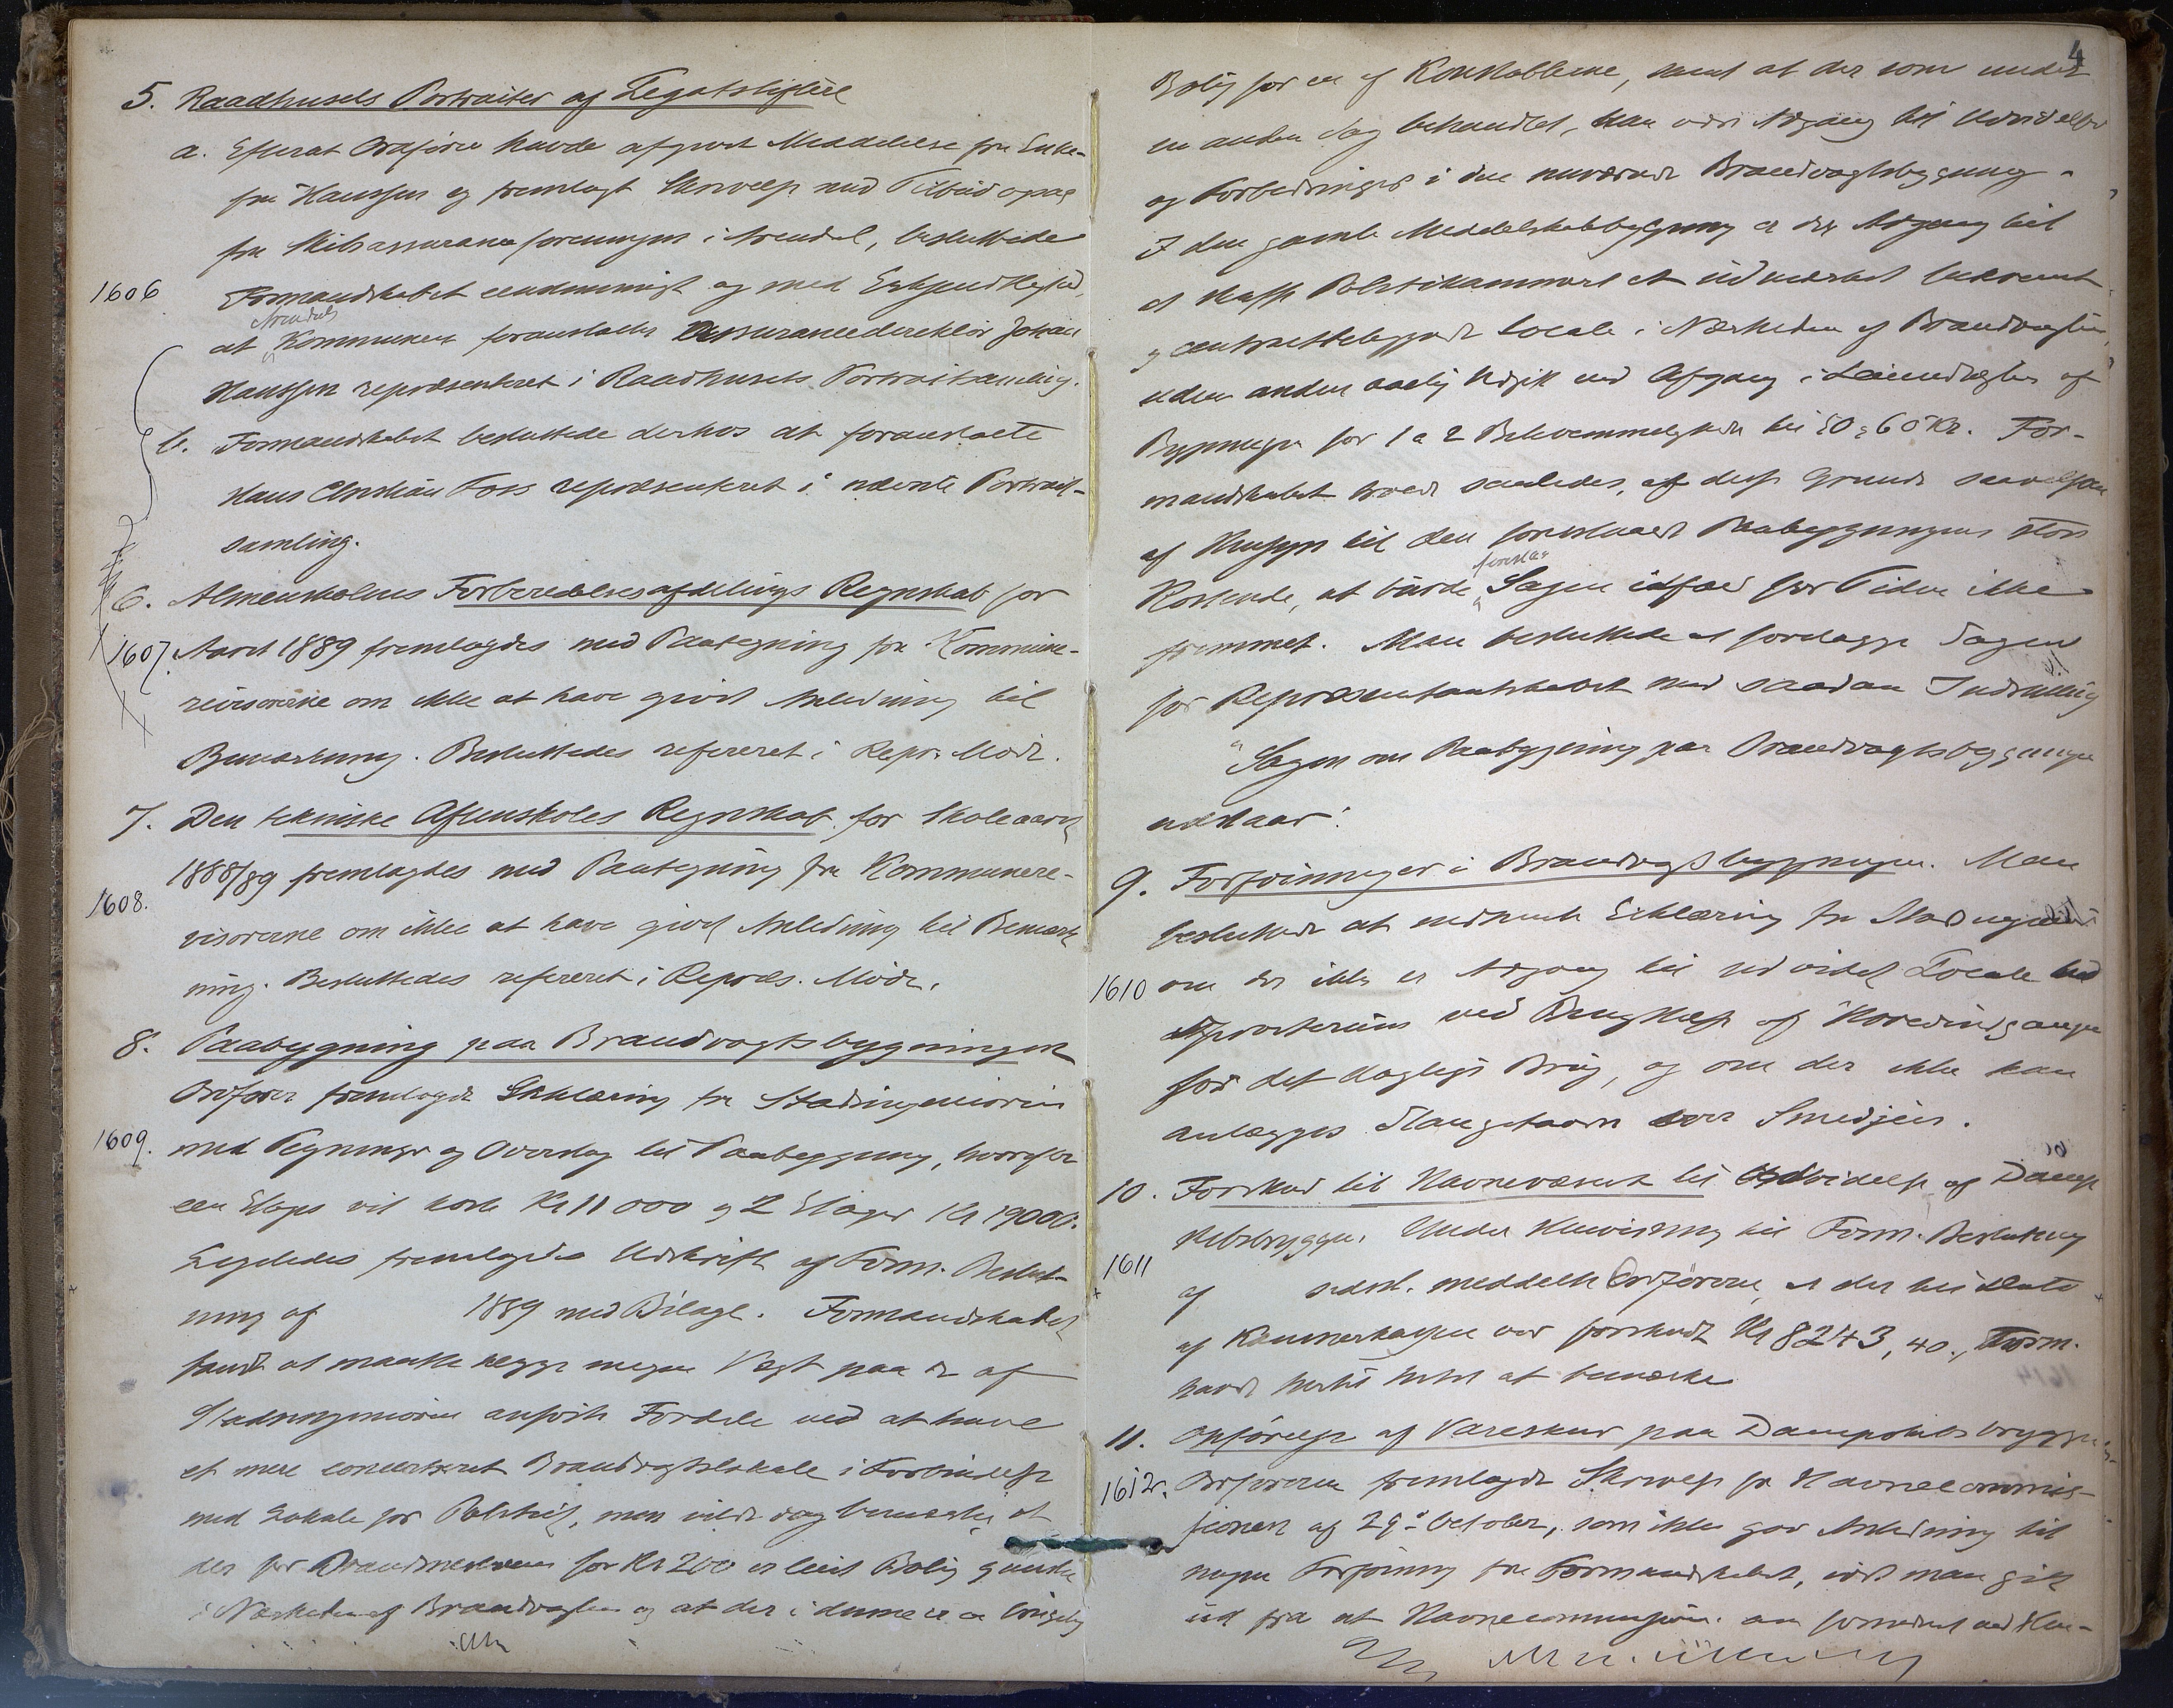 5. Raadhusets Portraiter af Legatstiftere
a. Efterat Ordfører havde afgivet Meddelelse fra Enke-
fru Hanssen og fremlagt Skrivelse med Tilbud
fra Skibsassuranceforeningen i Arendal, besluttede
1606
Formandskabet eenstemmigt og med Erkjendtlighed,
Arendals
at Kommunen foranstalter Assurancedirektør Johan
Hanssen repræsenteret i Raadhusets Portraitsamling.
b. Formandskabet besluttede derhos at foranstalte
Hans Christian Foss repræsenteret i nævnte Portrait-
samling.
6. Almenskolens Forberedelsesafdelings Regnskab for
1607. Aaret 1889 fremlagdes med Paategning fra Kommune-
revisorerne om ikke at have givet Anledning til
Bemærkning. Besluttedes refereret i Repr. Møde.
7. Den tekniske Aftenskoles Regnskab for Skoleaaret
1888/89 fremlagdes med Paategning fra Kommunere-
1608.
visorerne om ikke at have givet Anledning til Bemærk-
ning. Besluttedes refereret i Repræs. Møde.
8. Paabygning paa Brandvagtsbygningen
Ordfører fremlagde Erklæring fra Stadsingeniøren
1609.
med Tegninger og Overslag til Paabygning, hvorefter
een Etage vil koste Kr 11 000 og 2 Etager Kr 19000.
Ligeledes fremlagdes Udskrift af Form. Beslut-
ning af 1889 med Bilage. Formandskabet
fandt at maatte lægge megen Vægt paa de af
Stadsingeniøren anførte Fordele ved at have
et mere concentreret Brandvagtslokale i Forbindelse
med Lokale for Politiet, men vilde dog bemærke at
der for Brandmesteren for Kr 200 er leiet Bolig
i Nærheden af Brandvagten og at der i denne er
4
Bolig for en af Konstablerne, samt at der som under
en anden Sag behandlet, kan være Adgang til Udvidelse
og Forbedringer i den nuværende Brandvagtsbygning.
I den gamle Middelskolebygning er der Adgang til
at skaffe Politikammeret et udmærket bekvemt
og centralt beliggende Locale i Nærheden af Brandvagten,
uden anden aarlig Udgift end Afgang i Leieindtægter af
Bygningen for 1 a 2 Bekvemmeligheder til 50 a 60 Kr. For-
mandskabet troede saaledes, af disse Grunde saavelsom
af Hensyn til den foreslaaede Paabygningens store
foreslaa
Kostende, at burde Sagen ialfald for Tiden ikke
fremmet. Man besluttede at forelægge Sagen
for Repræsentantskabet med saadan Indstilling
"Sagen om Paabygning paa Brandvagtsbygningen
udstaar".
9. Forføininger i Brandvagtsbygningen. Man
besluttede at indhente Erklæring fra Stadsingeniøren
1610 om der ikke er Adgang til udvidet Locale
ved af Hovedindgangen
for det daglige Brug, og om der ikke kan
anlægges Slangetaarn over Smedjen.
10. Forskud til Havnevæsenet til Udvidelse af Damp-
skibsbryggen. Under Henvisning til Form. Beslutning
1611
af sidstl. meddelte Ordføreren, at der til Dato
af Kæmnerkassen var forskudt Kr 8243,40., Form.
havde hertil Intet at bemærke
11. Opførelse af Vareskur paa Dampskibsbryggen
1612. Ordføreren fremlagde Skrivelse fra Havnecommis-
sionen af 29de October, som ikke gav Anledning til
nogen Forføining fra Formandskabet, idet man gik
ud fra at Havnecommissionen